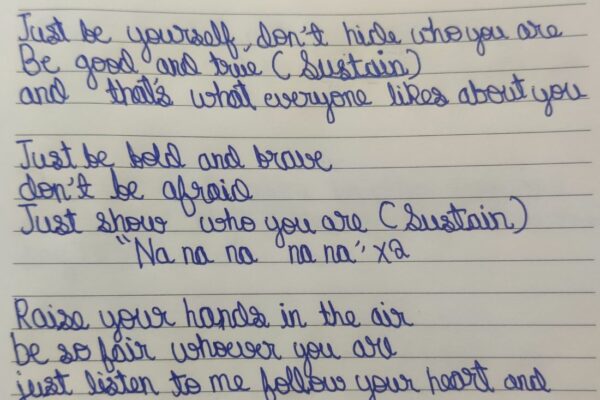 Just be yourself, don't hide who you are
Be good and true (Sustain)
and that's what everyone likes about you
Just be bold and brave
don't be afraid
Just show who you are (Sustain)
"Na na na na na" x2
Raise your hands in the air
be so fair whoever you are
just listen to me follow your heart and